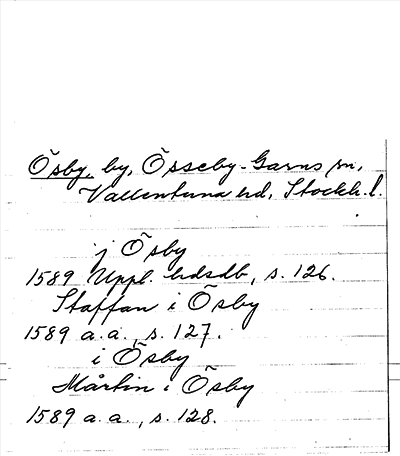 Ösby, by, Össeby-Garns sn,
Vallentuna hd, Stockh. l.
j Ösby
1589 Uppl. hdsdb, s. 126.
Staffan i Ösby
1589 a.a., s. 127.
i Ösby
Mårtin i Ösby
1589 a.a., s. 128.